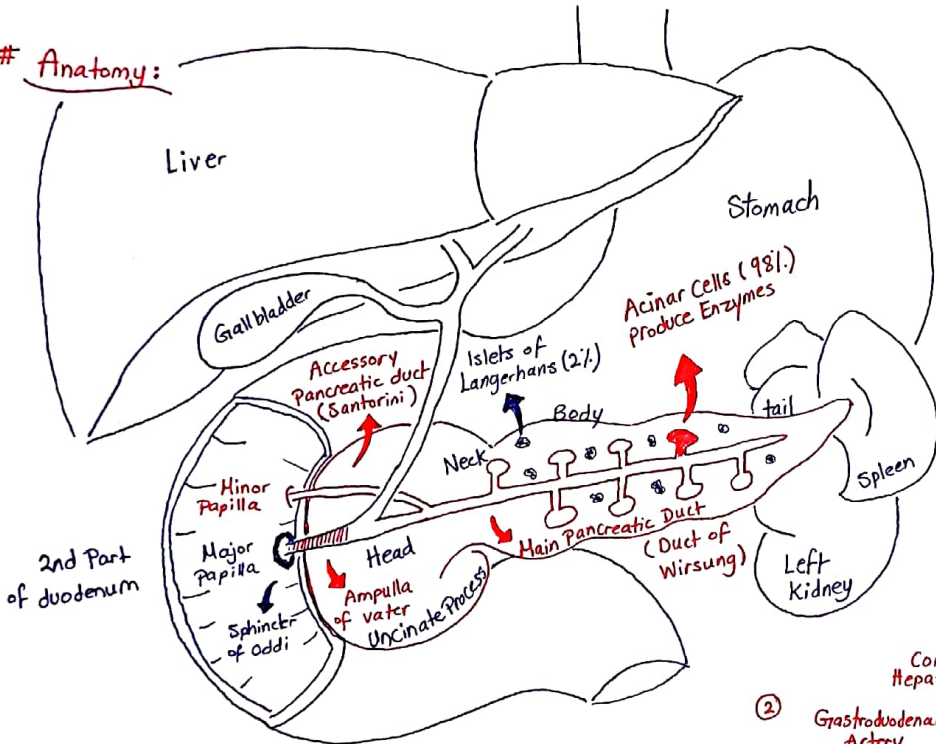 # Anatomy:
Liver
Stomach
Gallbladder
Acinar Cells (98%)
Produce Enzymes
Accessory
Pancreatic duct
(Santorini)
Islets of
Langerhans (2%)
Body
tail
Neck
Spleen
Minor
Papilla
Major
Papilla
Head
Main Pancreatic Duct
(Duct of
Wirsung)
2nd Part
of duodenum
Ampulla
of vater
Uncinate Process
Left
Kidney
Sphincter
of Oddi
Co
Hepa
2
Gastroduodena
Artery